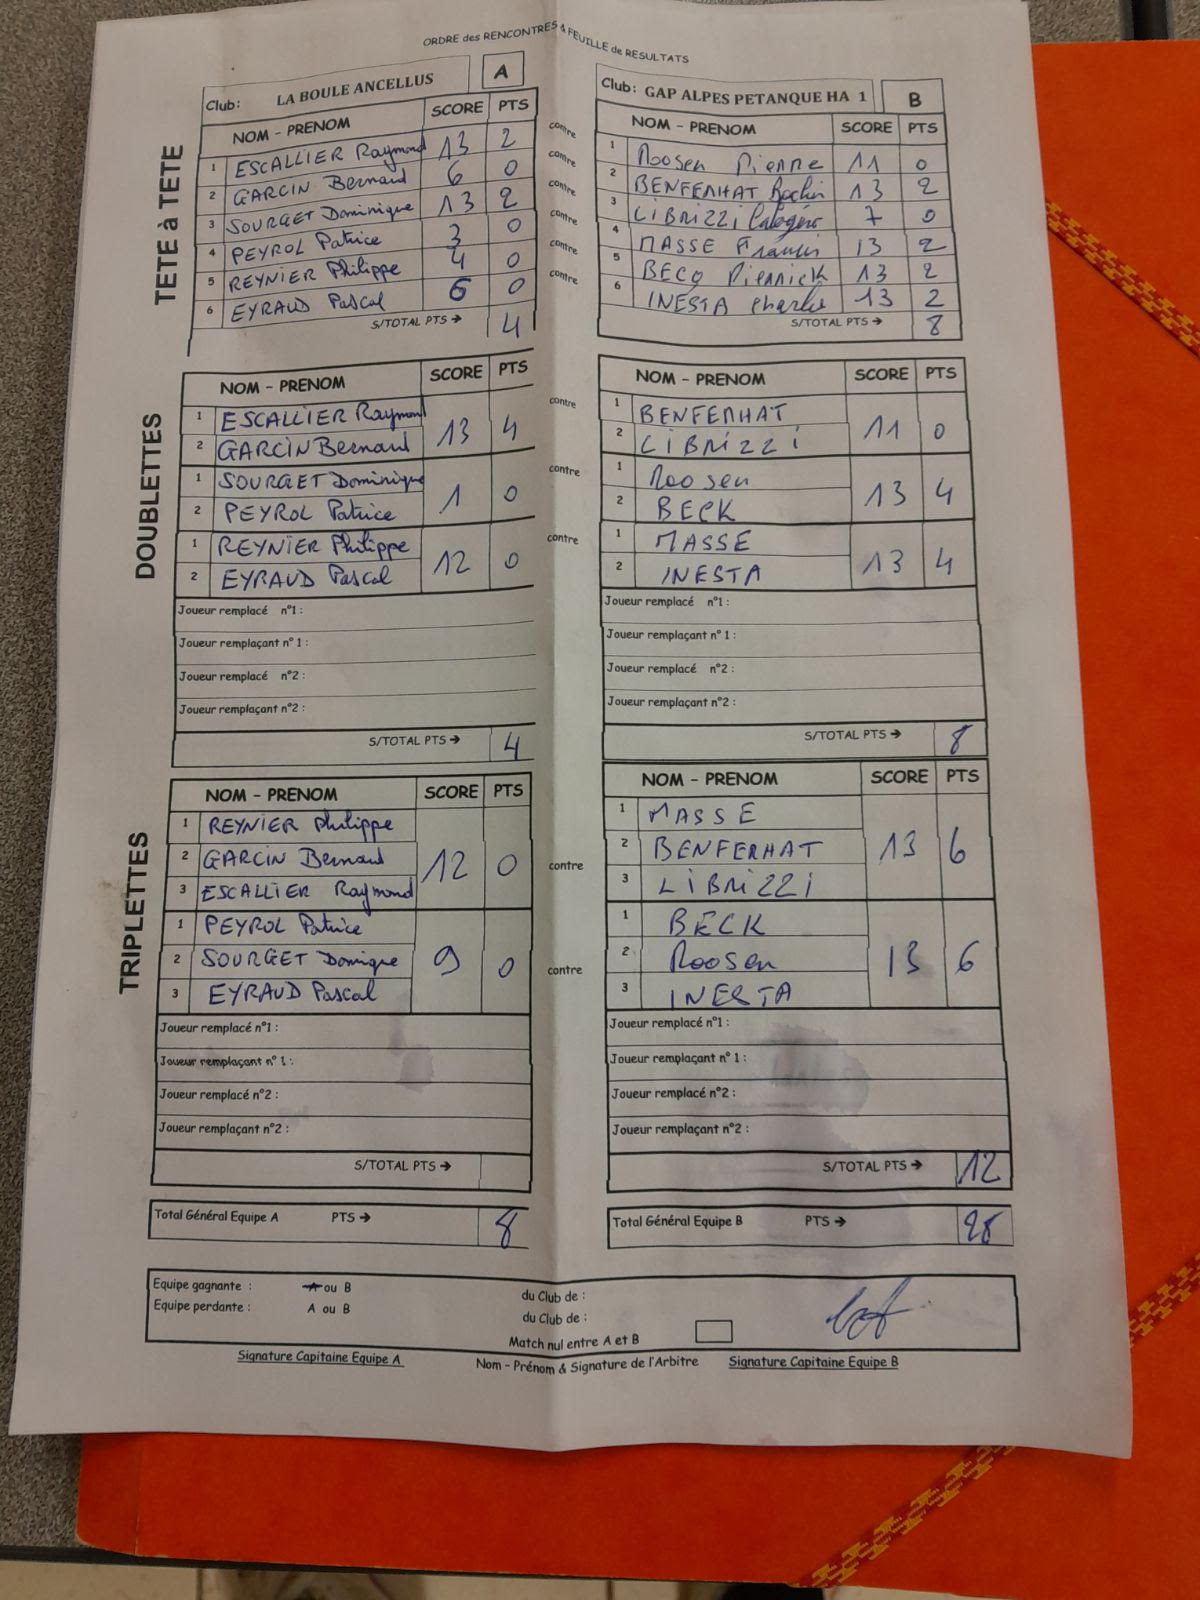 ORDRE des RENCONTRES & FEUILLE de RESULTATS
Club: LA BOULE ANCELLUS A
NOM - PRENOM SCORE PTS
TETE à TETE
1 ESCALLIER Raymond 13 2
2 GARCIN Bernard 6 0
3 SOURGET Dominique 13 2
4 PEYROL Patrice 3 0
5 REYNIER Philippe 4 0
6 EYRAUD Pascal 6 0
S/TOTAL PTS → 4
contre
contre
contre
contre
contre
contre
Club: GAP ALPES PETANQUE HA 1 B
NOM - PRENOM SCORE PTS
1 Roosen Pierre 11 0
2 BENFERHAT 13 2
3 LIBRIZZI Calogero 7 0
4 MASSE Francis 13 2
5 BECQ Pierrick 13 2
6 INESTA Charlie 13 2
S/TOTAL PTS → 8
DOUBLETTES
NOM - PRENOM SCORE PTS
1 ESCALLIER Raymond
2 GARCIN Bernard 13 4
1 SOURGET Dominique
2 PEYROL Patrice 1 0
1 REYNIER Philippe
2 EYRAUD Pascal 12 0
Joueur remplacé n°1 :
Joueur remplaçant n° 1 :
Joueur remplacé n°2 :
Joueur remplaçant n°2 :
S/TOTAL PTS → 4
contre
contre
contre
NOM - PRENOM SCORE PTS
1 BENFERHAT
2 LIBRIZZI 11 0
1 Roosen
2 BECK 13 4
1 MASSE
2 INESTA 13 4
Joueur remplacé n°1 :
Joueur remplaçant n° 1 :
Joueur remplacé n°2 :
Joueur remplaçant n°2 :
S/TOTAL PTS → 8
TRIPLETTES
NOM - PRENOM SCORE PTS
1 REYNIER Philippe
2 GARCIN Bernard 12 0
3 ESCALLIER Raymond
1 PEYROL Patrice
2 SOURGET Domique 9 0
3 EYRAUD Pascal
Joueur remplacé n°1 :
Joueur remplaçant n° 1 :
Joueur remplacé n°2 :
Joueur remplaçant n°2 :
S/TOTAL PTS →
contre
contre
NOM - PRENOM SCORE PTS
1 MASSE
2 BENFERHAT 13 6
3 LIBRIZZI
1 BECK
2 Roosen 13 6
3 INESTA
Joueur remplacé n°1 :
Joueur remplaçant n° 1 :
Joueur remplacé n°2 :
Joueur remplaçant n°2 :
S/TOTAL PTS → 12
Total Général Equipe A PTS → 8
Total Général Equipe B PTS → 28
Equipe gagnante : A ou B du Club de :
Equipe perdante : A ou B du Club de :
Match nul entre A et B
Signature Capitaine Equipe A Nom - Prénom & Signature de l'Arbitre Signature Capitaine Equipe B